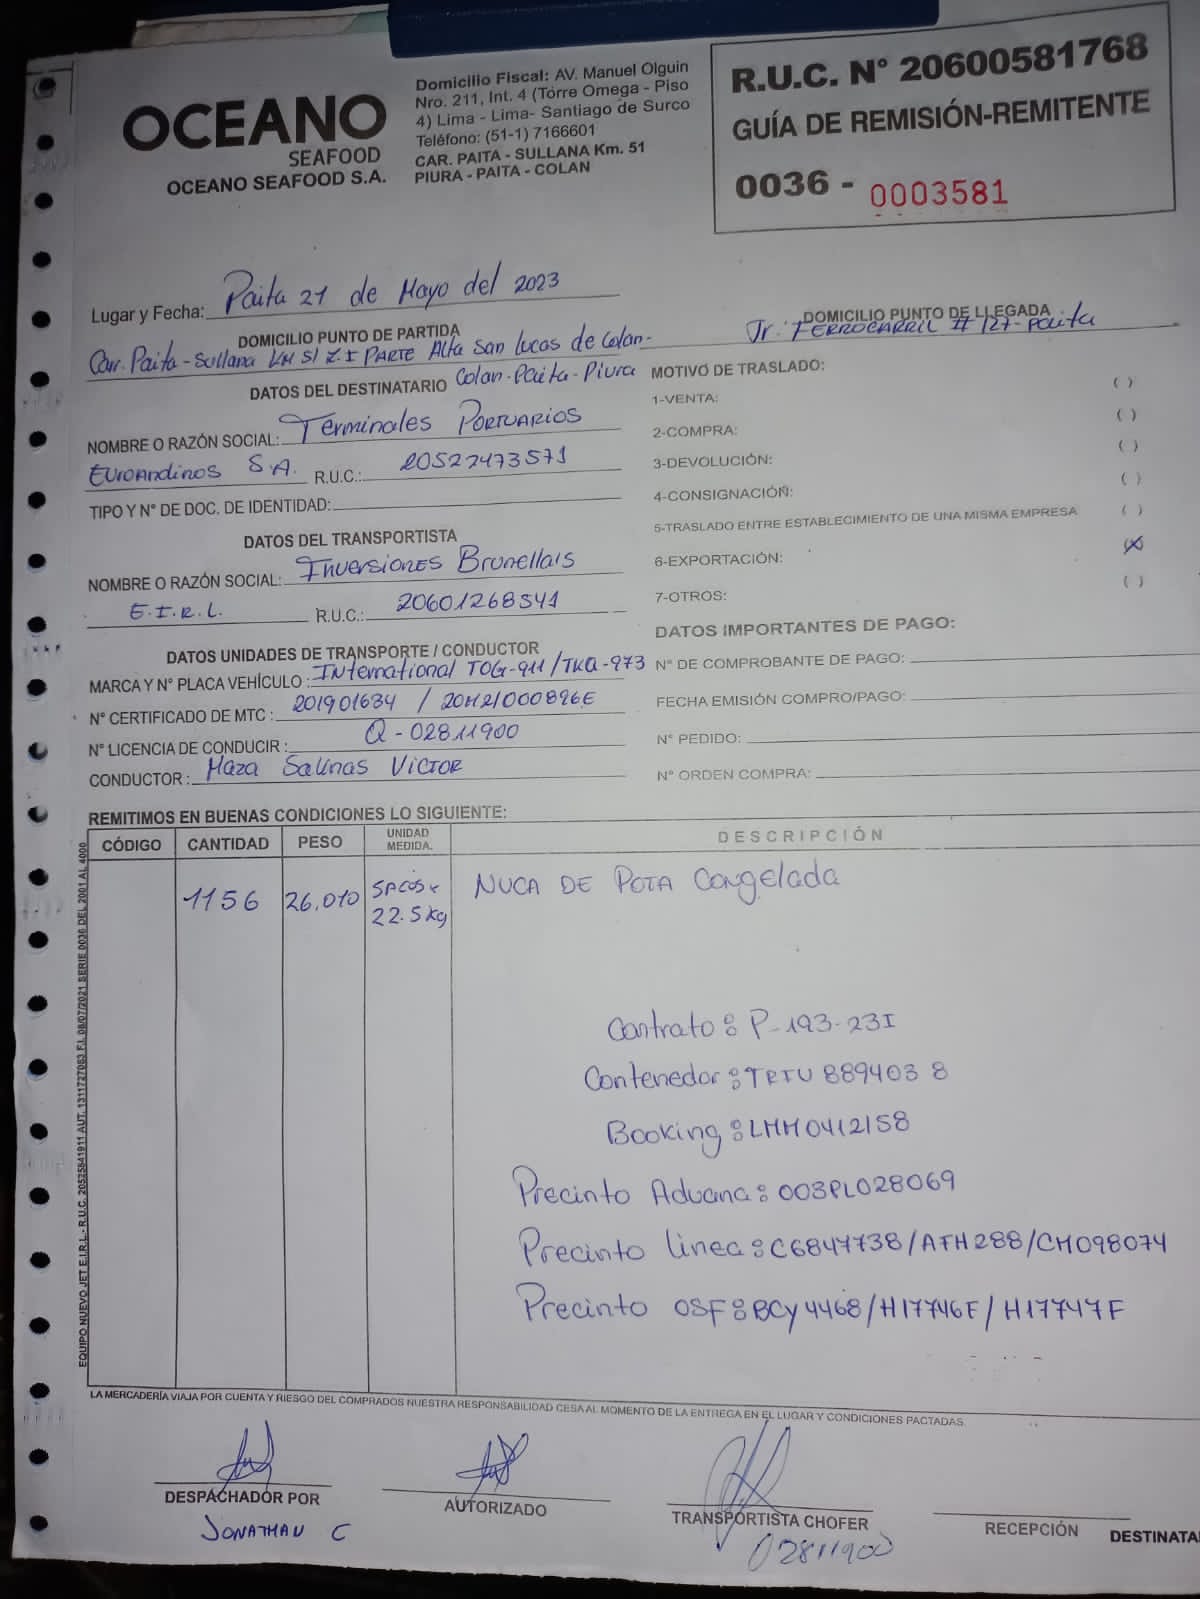 OCEANO
SEAFOOD
OCEANO SEAFOOD S.A.
Domicilio Fiscal: AV. Manuel Olguin
Nro. 211, Int. 4 (Torre Omega - Piso
4) Lima - Lima- Santiago de Surco
Teléfono: (51-1) 7166601
CAR. PAITA - SULLANA Km. 51
PIURA - PAITA - COLAN
R.U.C. N° 20600581768
GUÍA DE REMISIÓN-REMITENTE
0036 - 0003581
Lugar y Fecha: Paita 21 de Mayo del 2023
DOMICILIO PUNTO DE PARTIDA
Carr. Paita - Sullana KM 51 Z.I PARTE Alta San Lucas de Colan-
Colan-Paita-Piura
DOMICILIO PUNTO DE LLEGADA
Jr. FERROCARRIL # 127- Paita
DATOS DEL DESTINATARIO
NOMBRE O RAZÓN SOCIAL: Terminales PORTUARIOS
EUROANDINOS S.A. R.U.C.: 20522473571
TIPO Y N° DE DOC. DE IDENTIDAD:
DATOS DEL TRANSPORTISTA
NOMBRE O RAZÓN SOCIAL: INVERSIONES Brunellais
E.I.R.L. R.U.C.: 20601268541
DATOS UNIDADES DE TRANSPORTE / CONDUCTOR
MARCA Y N° PLACA VEHÍCULO: INternational TOG-911/TKQ-973
N° CERTIFICADO DE MTC: 201901634 / 20M21000896E
N° LICENCIA DE CONDUCIR: Q-02811900
CONDUCTOR: Maza Salinas VICTOR
MOTIVO DE TRASLADO:
1-VENTA: ( )
2-COMPRA: ( )
3-DEVOLUCIÓN: ( )
4-CONSIGNACIÓN: ( )
5-TRASLADO ENTRE ESTABLECIMIENTO DE UNA MISMA EMPRESA ( )
6-EXPORTACIÓN: (X)
7-OTROS: ( )
DATOS IMPORTANTES DE PAGO:
N° DE COMPROBANTE DE PAGO:
FECHA EMISIÓN COMPRO/PAGO:
N° PEDIDO:
N° ORDEN COMPRA:
REMITIMOS EN BUENAS CONDICIONES LO SIGUIENTE:
CÓDIGO CANTIDAD PESO UNIDAD MEDIDA. DESCRIPCIÓN
1156 26,010 SACOS x 22.5 kg NUCA DE POTA Congelada
Contrato: P-193-23I
Contenedor: TRIU 889403 8
Booking: LMM0412158
Precinto Aduana: 003PL028069
Precinto linea: C6847738/AFH288/CM098074
Precinto OSF: BCY4468/H17746F/H17747F
EQUIPO NUEVO JET E.I.R.L - R.U.C. 20525841911 AUT. 1311727063 F.I. 08/07/2021 SERIE 0036 DEL 2001 AL 4000
LA MERCADERÍA VIAJA POR CUENTA Y RIESGO DEL COMPRADOS NUESTRA RESPONSABILIDAD CESA AL MOMENTO DE LA ENTREGA EN EL LUGAR Y CONDICIONES PACTADAS.
DESPACHADOR POR
JONATHAN C
AUTORIZADO
TRANSPORTISTA CHOFER
02811900
RECEPCIÓN
DESTINATA